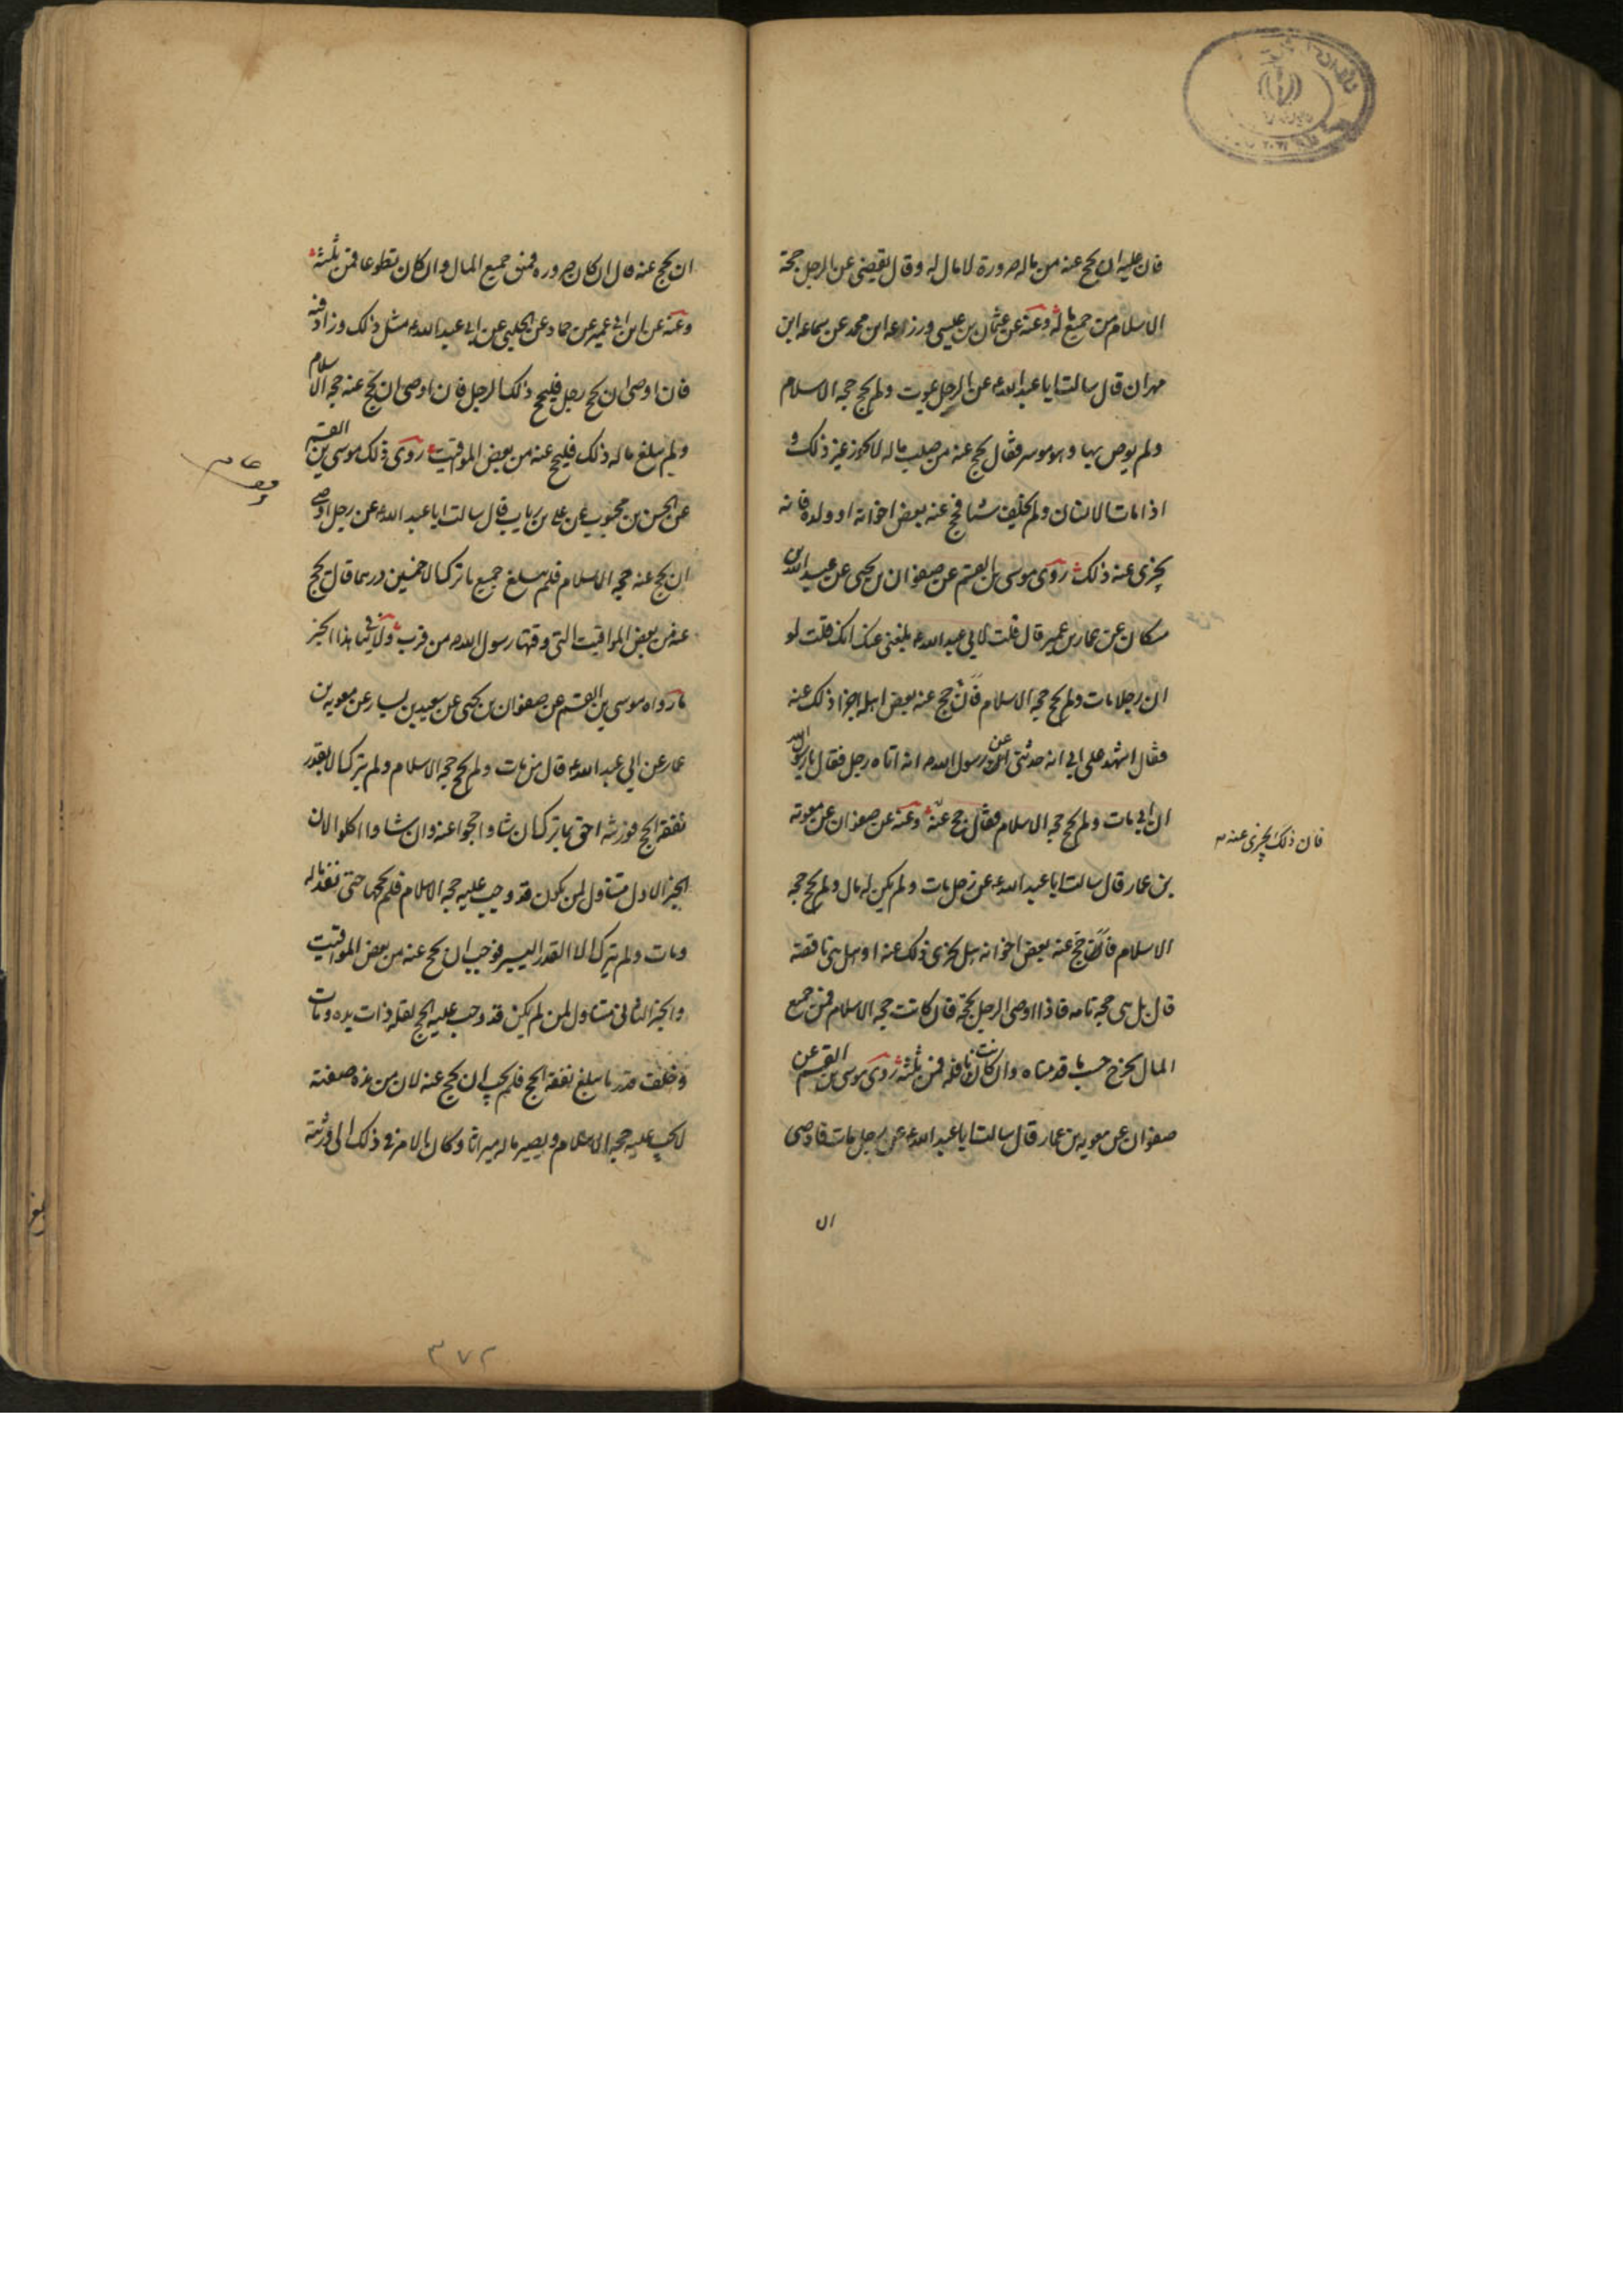 فان عليه ان يحج عنه من ماله صرورة لا مال له وقال يقضى عن الرجل حجة
الاسلام من جميع ماله وعنه عن عثمان بن عيسى وزرعه ابن محمد عن سماعه ابن
مهران قال سالت ابا عبد الله ع عن الرجل يموت ولم يحج حجه الاسلام
ولم يوص بها وهو موسر فقال يحج عنه من صلب ماله لا يجوز غير ذلك و
اذا مات الانسان ولم يخلف شيا فحج عنه بعض اخوانه او ولده فانه
يجزى عنه ذلك روى موسى بن القسم عن صفوان بن يحيى عن عبد الله بن
مسكان عن عمار بن عمير قال قلت لابي عبد الله ع بلغنى عنك انك قلت لو
ان رجلا مات ولم يحج حجه الاسلام فان حج عنه بعض اهله اجزا ذلك عنه
فقال اشهد على ابي انه حدثنى عن رسول الله ص انه اتاه رجل فقال يا رسول الله
ان ابي مات ولم يحج حجه الاسلام فقال حج عنه وعنه عن صفوان عن معويه
فان ذلك يجزى عنه
بن عمار قال سالت ابا عبد الله ع عن رجل مات ولم يكن له مال ولم يحج حجه
الاسلام فاحج عنه بعض اخوانه هل يجزى ذلك عنه او هل هى ناقصه
قال بل هى حجه تامه فاذا اوصى الرجل بحجة فان كانت حجه الاسلام فمن جميع
المال يخرج حسب ما قدمناه وان كانت نافله فمن ثلثه روى موسى بن القسم عن
صفوان عن معويه بن عمار قال سالت ابا عبد الله ع عن رجل مات فاوصى
ان
ان يحج عنه قال ان كان صروره فمن جميع المال وان كان تطوعا فمن ثلثه
وعنه عن ابن ابي عمير عن حماد عن الحلبي عن ابي عبد الله ع مثل ذلك وزاد فيه
فان اوصى ان يحج رجل فليحج ذلك الرجل فان اوصى ان يحج عنه حجه الاسلام
ولم يبلغ ماله ذلك فليحج عنه من بعض المواقيت روى ذلك موسى بن القسم
عن الحسن بن محبوب عن على بن رياب قال سالت ابا عبد الله ع عن رجل اوصى
ان يحج عنه حجه الاسلام فلم يبلغ جميع ما ترك الا خمسين درهما قال يحج
عنه من بعض المواقيت التى وقتها رسول الله ص من قرب ولا ينافى هذا الخبر
ما رواه موسى بن القسم عن صفوان بن يحيى عن سعيد بن يسار عن معويه بن
عمار عن ابي عبد الله ع قال من مات ولم يحج حجه الاسلام ولم يترك الا بقدر
نفقه الحج فورثته احق بما ترك ان شاوا حجوا عنه وان شاوا اكلوا لان
الخبر الاول متناول لمن يكون قد وجب عليه حجه الاسلام فلم يحجها حتى نفد ماله
ومات ولم يترك الا القدر اليسير فوجب ان يحج عنه من بعض المواقيت
والخبر الثانى متناول لمن لم يكن قد وجب عليه الحج لقله ذات يده ومات
وخلف قدر ما يبلغ نفقه الحج فلم يجب ان يحج عنه لان من هذه صفته
لا يجب عليه حجه الاسلام ويصير ماله ميراثا وكان بالامر فى ذلك الى ورثته
٣٧٢